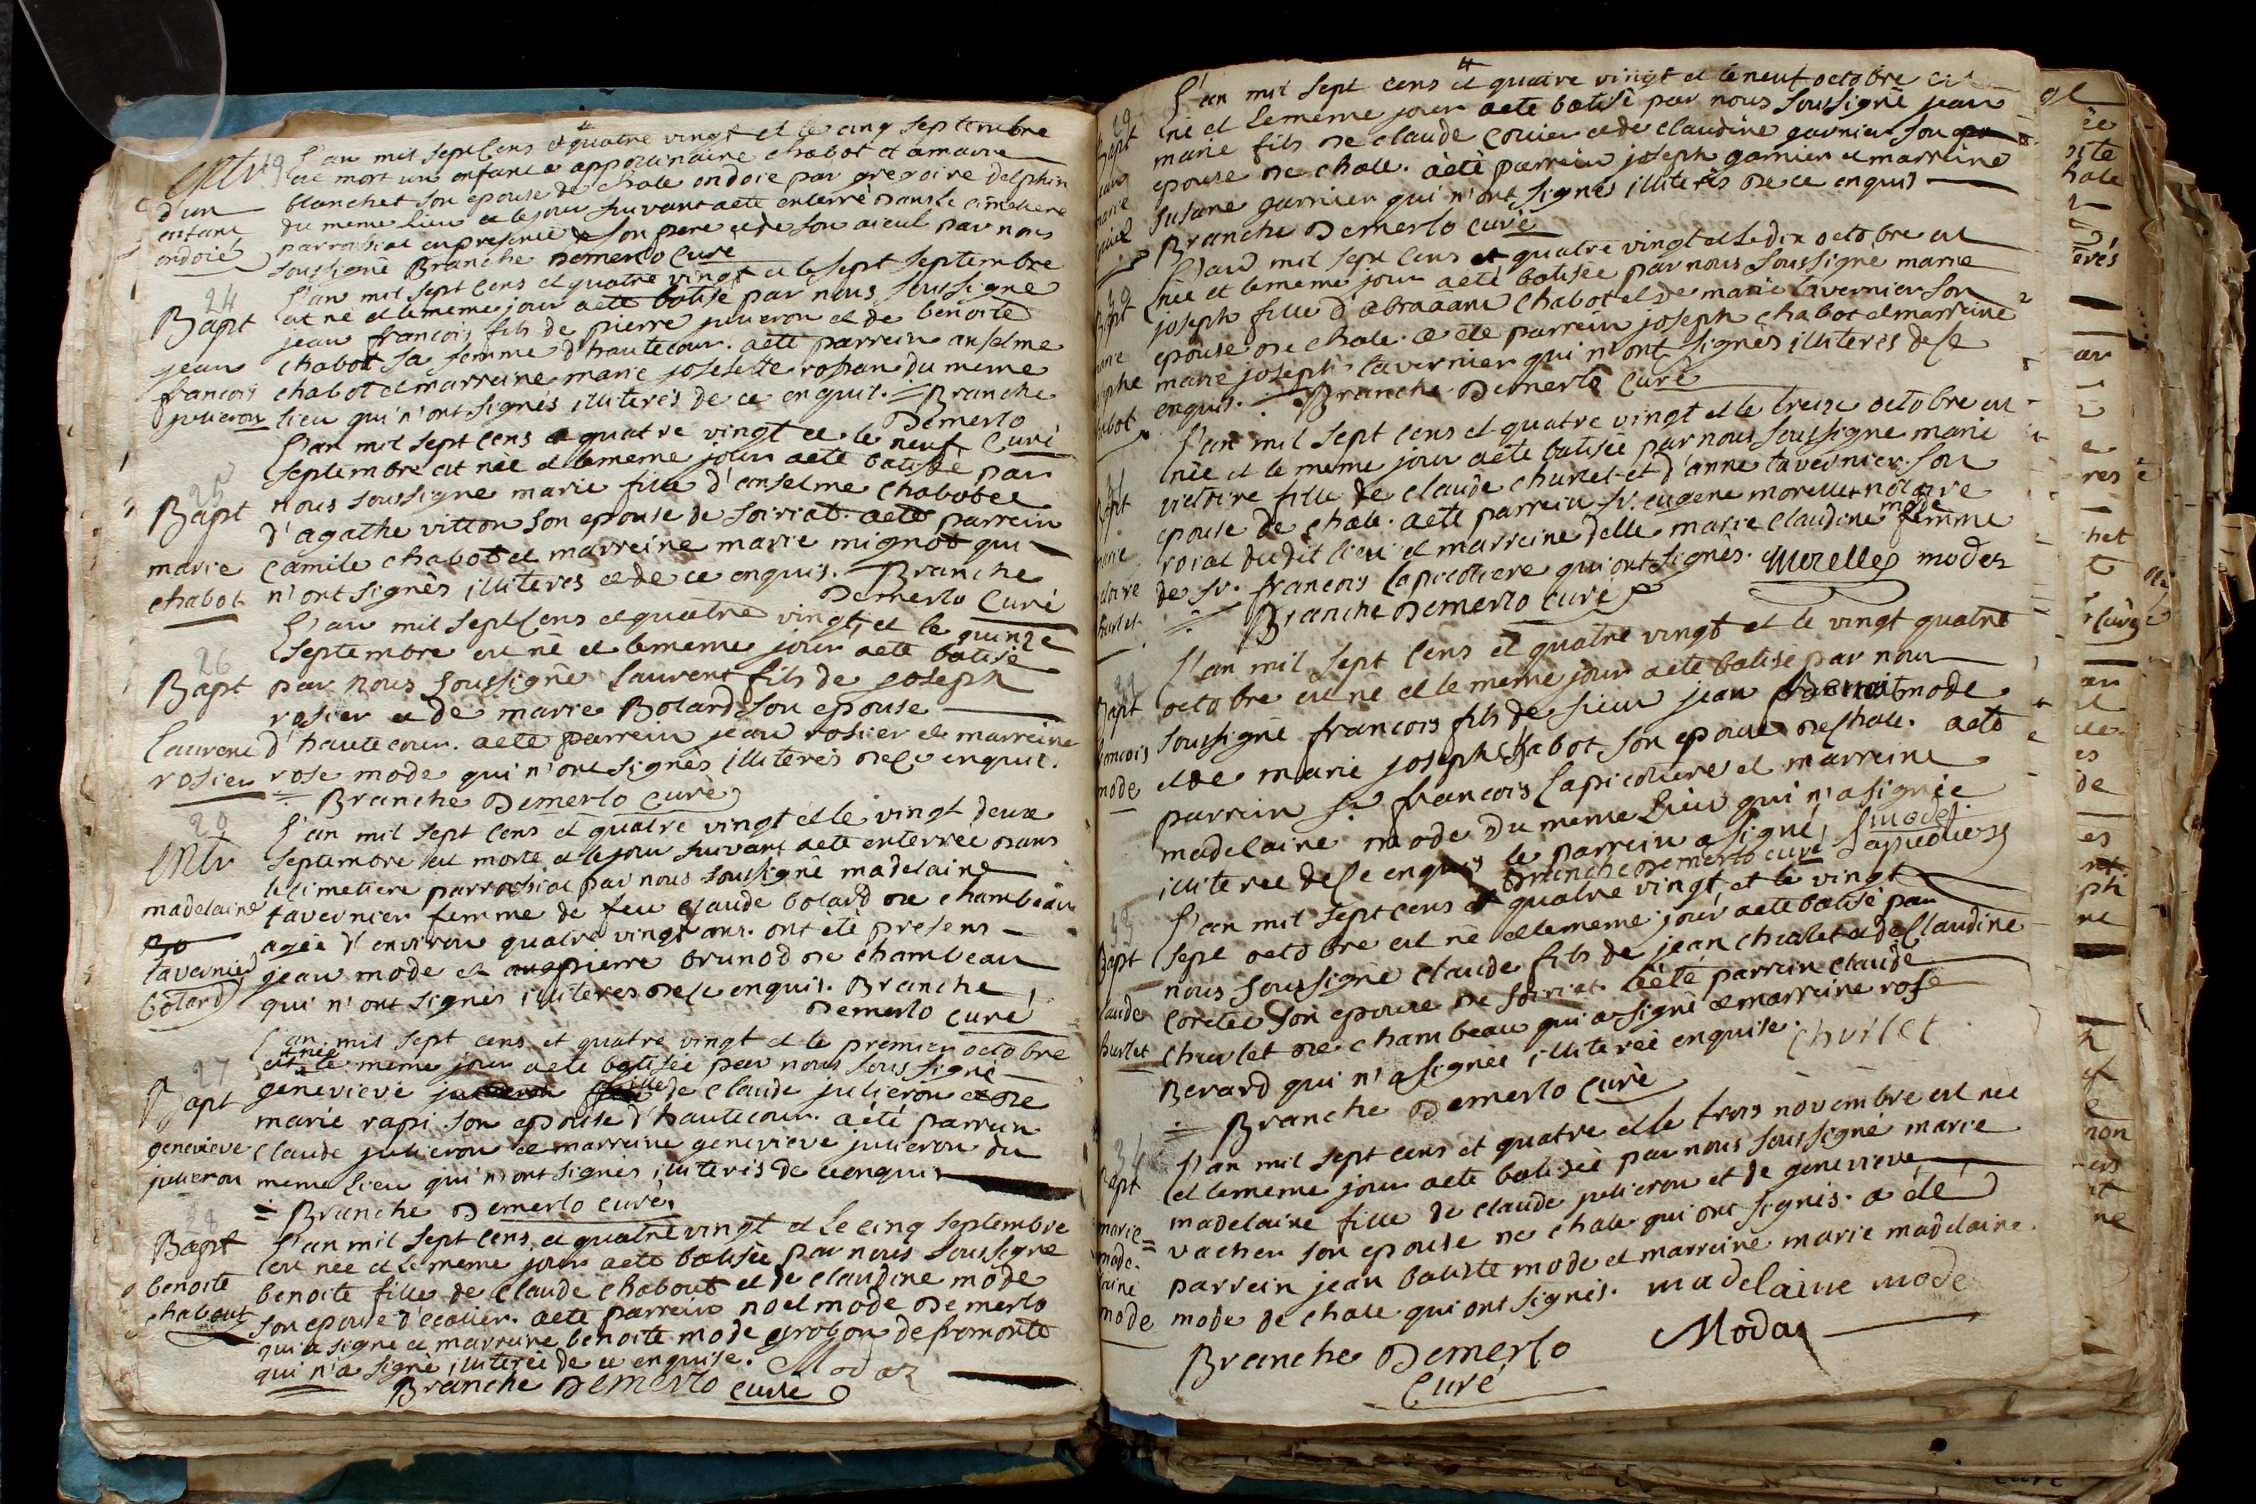 19
entr
d'un
enfant
ondoié
L'an mil sept cens et quatre vingt et le cinq septembre
est mort un enfant a appolinaire chabot et a marie
blanchet son epouse de chale ondoie par gregoire delphin
du meme lieu et le jour suivant aete enterré dans le cimetiere
parroissial en presence de son pere et de son aieul par nous
soussigné Branche Demerlo curé
24
Bapt
jean
francois
julieron
L'an mil sept cens et quatre vingt et le sept septembre
est né et le meme jour aete batisé par nous soussigné
jean francois fils de pierre julieron et de benoite
chabot sa femme d'hautecour. aete parrein anselme
chabot et marreine marie josephte rossan du meme
lieu qui n'ont signés illiterés de ce enquis. Branche
Demerlo
curé
25
Bapt
marie
chabot
L'an mil sept cens et quatre vingt et le neuf
septembre est née et le meme jour aete batisée par
nous soussigné marie fille d'anselme chabot et
d'agathe vitton son epouse de soiriat. aete parrein
camile chabot et marreine marie mignot qui
n'ont signés illiterés de ce enquis. Branche
Demerlo curé
26
Bapt
laurent
rosier
L'an mil sept cens et quatre vingt et le quinze
septembre est né et le meme jour aete batisé
par nous soussigné laurent fils de joseph
rosier et de marie Bolard son epouse
d'hautecour. aete parrein jean rosier et marreine
rose mode qui n'ont signés illiterés de ce enquis.
Branche Demerlo curé
20
entr
madelaine
tavernier
bolard
L'an mil sept cens et quatre vingt et le vingt deux
septembre est morte et le jour suivant aete enterrée dans
le cimetiere parroissial par nous soussigné madelaine
tavernier femme de feu claude bolard de chambeau
agée d'environ quatre vingt ans. ont été presens
jean mode et pierre brunod de chambeau
qui n'ont signés illiterés de ce enquis. Branche
Demerlo curé
27
Bapt
genevieve
julieron
L'an mil sept cens et quatre vingt et le premier octobre
est née et le meme jour aete batisée par nous soussigné
genevieve fille de claude julieron et de
marie rapi son epouse d'hautecour. aété parrein
claude julieron et marreine genevieve julieron du
meme lieu qui n'ont signés illiterés de ce enquis
Branche Demerlo curé
28
Bapt
benoite
chabout
L'an mil sept cens et quatre vingt et le cinq septembre
est née et le meme jour aete batisée par nous soussigné
benoite fille de claude chabout et de claudine mode
son epouse d'ecouier. aete parrein noel mode de merlo
qui a signé et marreine benoite mode grobon de fromonte
qui n'a signé illiterée de ce enquise. Modas
Branche Demerlo curé
29
Bapt
L'an mil sept cens et quatre vingt et le neuf octobre est
né et le meme jour aete batisé par nous soussigné jean
marie fils de claude couier et de claudine garnier son
epouse de chale. aété parrein joseph garnier et marreine
susane garnier qui n'ont signés illiterés de ce enquis
Branche Demerlo curé
30
Bapt
L'an mil sept cens et quatre vingt et le dix octobre est
née et le meme jour aeté batisée par nous soussigné marie
joseph fille d'abraaam chabot et de marie tavernier son
epouse de chale. a été parrein joseph chabot et marreine
marie joseph tavernier qui n'ont signés illiterés de ce
enquis. Branche Demerlo curé
31
Bapt
L'an mil sept cens et quatre vingt et le treize octobre est
née et le meme jour aété batisée par nous soussigné marie
victoire fille de claude churlet et d'anne tavernier son
epouse de chale. aeté parrein sr. eugene morellet notaire
roial dudit lieu et marreine delle marie claudine mode femme
de sr. francois lapicotiere qui ont signés. Morellet modas
Branche Demerlo curé
32
Bapt
francois
mode
L'an mil sept cens et quatre vingt et le vingt quatre
octobre est né et le meme jour aeté batisé par nous
soussigné francois fils de sieur jean Benoit mode
et de marie joseph chabot son epouse de chale. aeté
parrein sr francois lapicotiere et marreine
madelaine mode du meme lieu qui n'a signée
illiterée de ce enquis le parrein a signé, mode
Branche Demerlo curé Lapicotiere
33
Bapt
claude
burlet
L'an mil sept cens et quatre vingt et le vingt
sept octobre est né et le meme jour aete batisé par
nous soussigné claude fils de jean churlet et de claudine
corcelet son epouse de soiriat. aété parrein claude
churlet de chambeau qui a signé et marreine rose
Berard qui n'a signée illiterée enquise. churlet
Branche Demerlo curé
34
Bapt
marie
made-
laine
mode
L'an mil sept cens et quatre et le trois novembre est née
et le meme jour aete batisée par nous soussigné marie
madelaine fille de claude julieron et de genevieve
vacher son epouse de chale qui ont signés. a été
parrein jean batiste mode et marreine marie madelaine
mode de chale qui ont signés. madelaine mode
Branche Demerlo Modas
curé